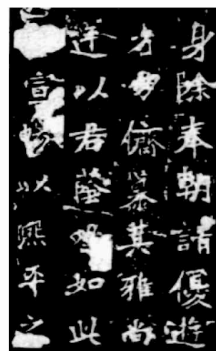 身除奉朝請優遊
儕慕其雅尚
以君蔭如此
宣以熙平之